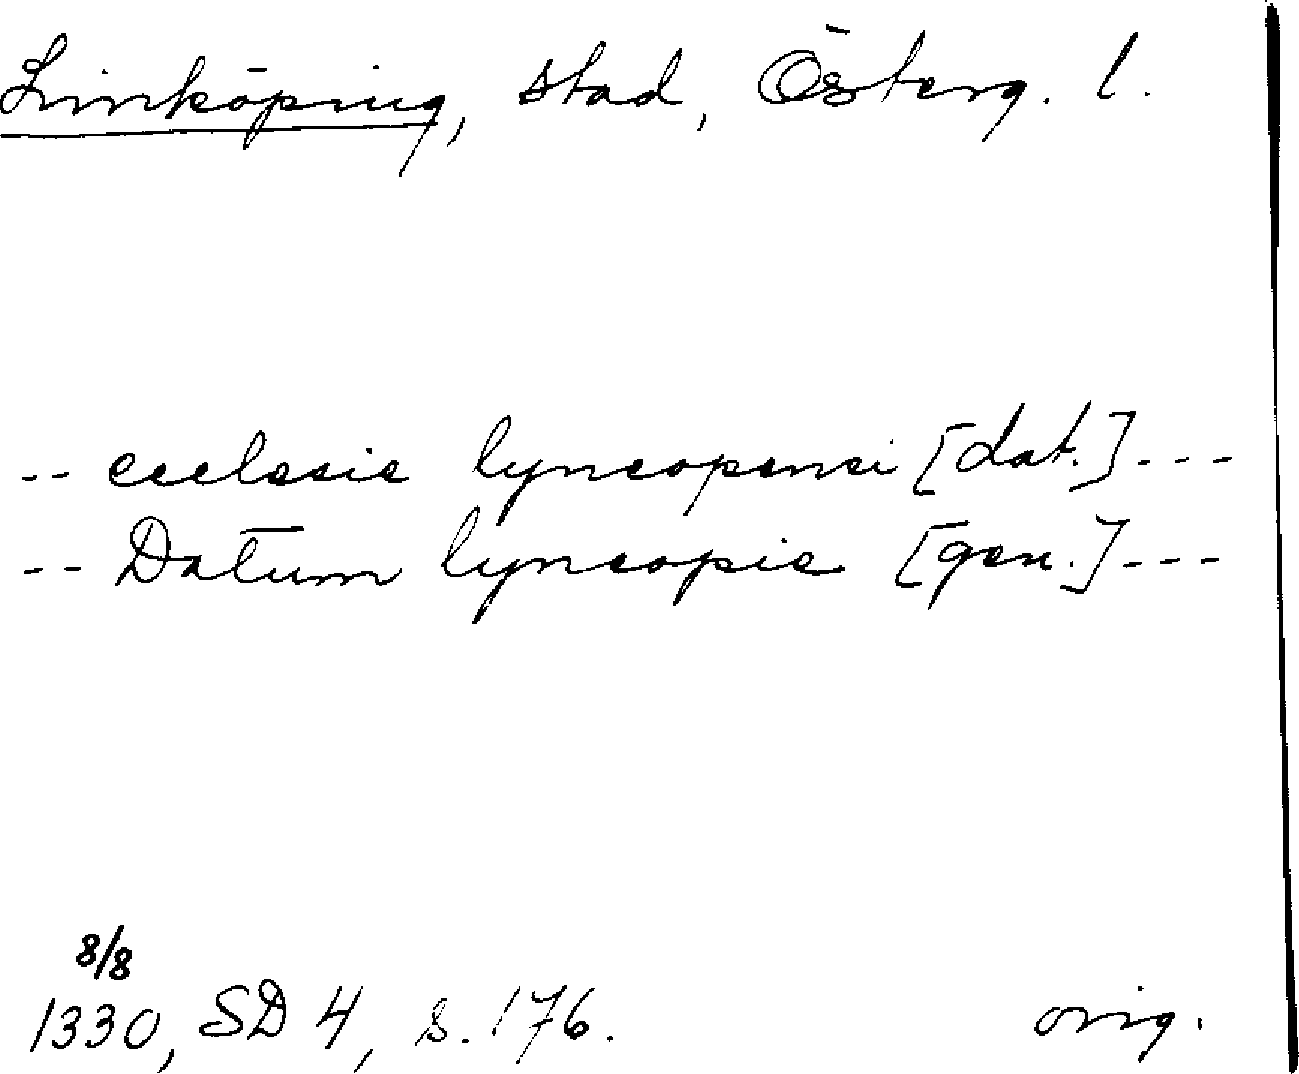 Linköping, stad, Österg. l.
-- ecclesie lyncopensi [dat.]---
-- Datum lyncopie [gen.]---
8/8
1330, SD 4, s. 176. orig.